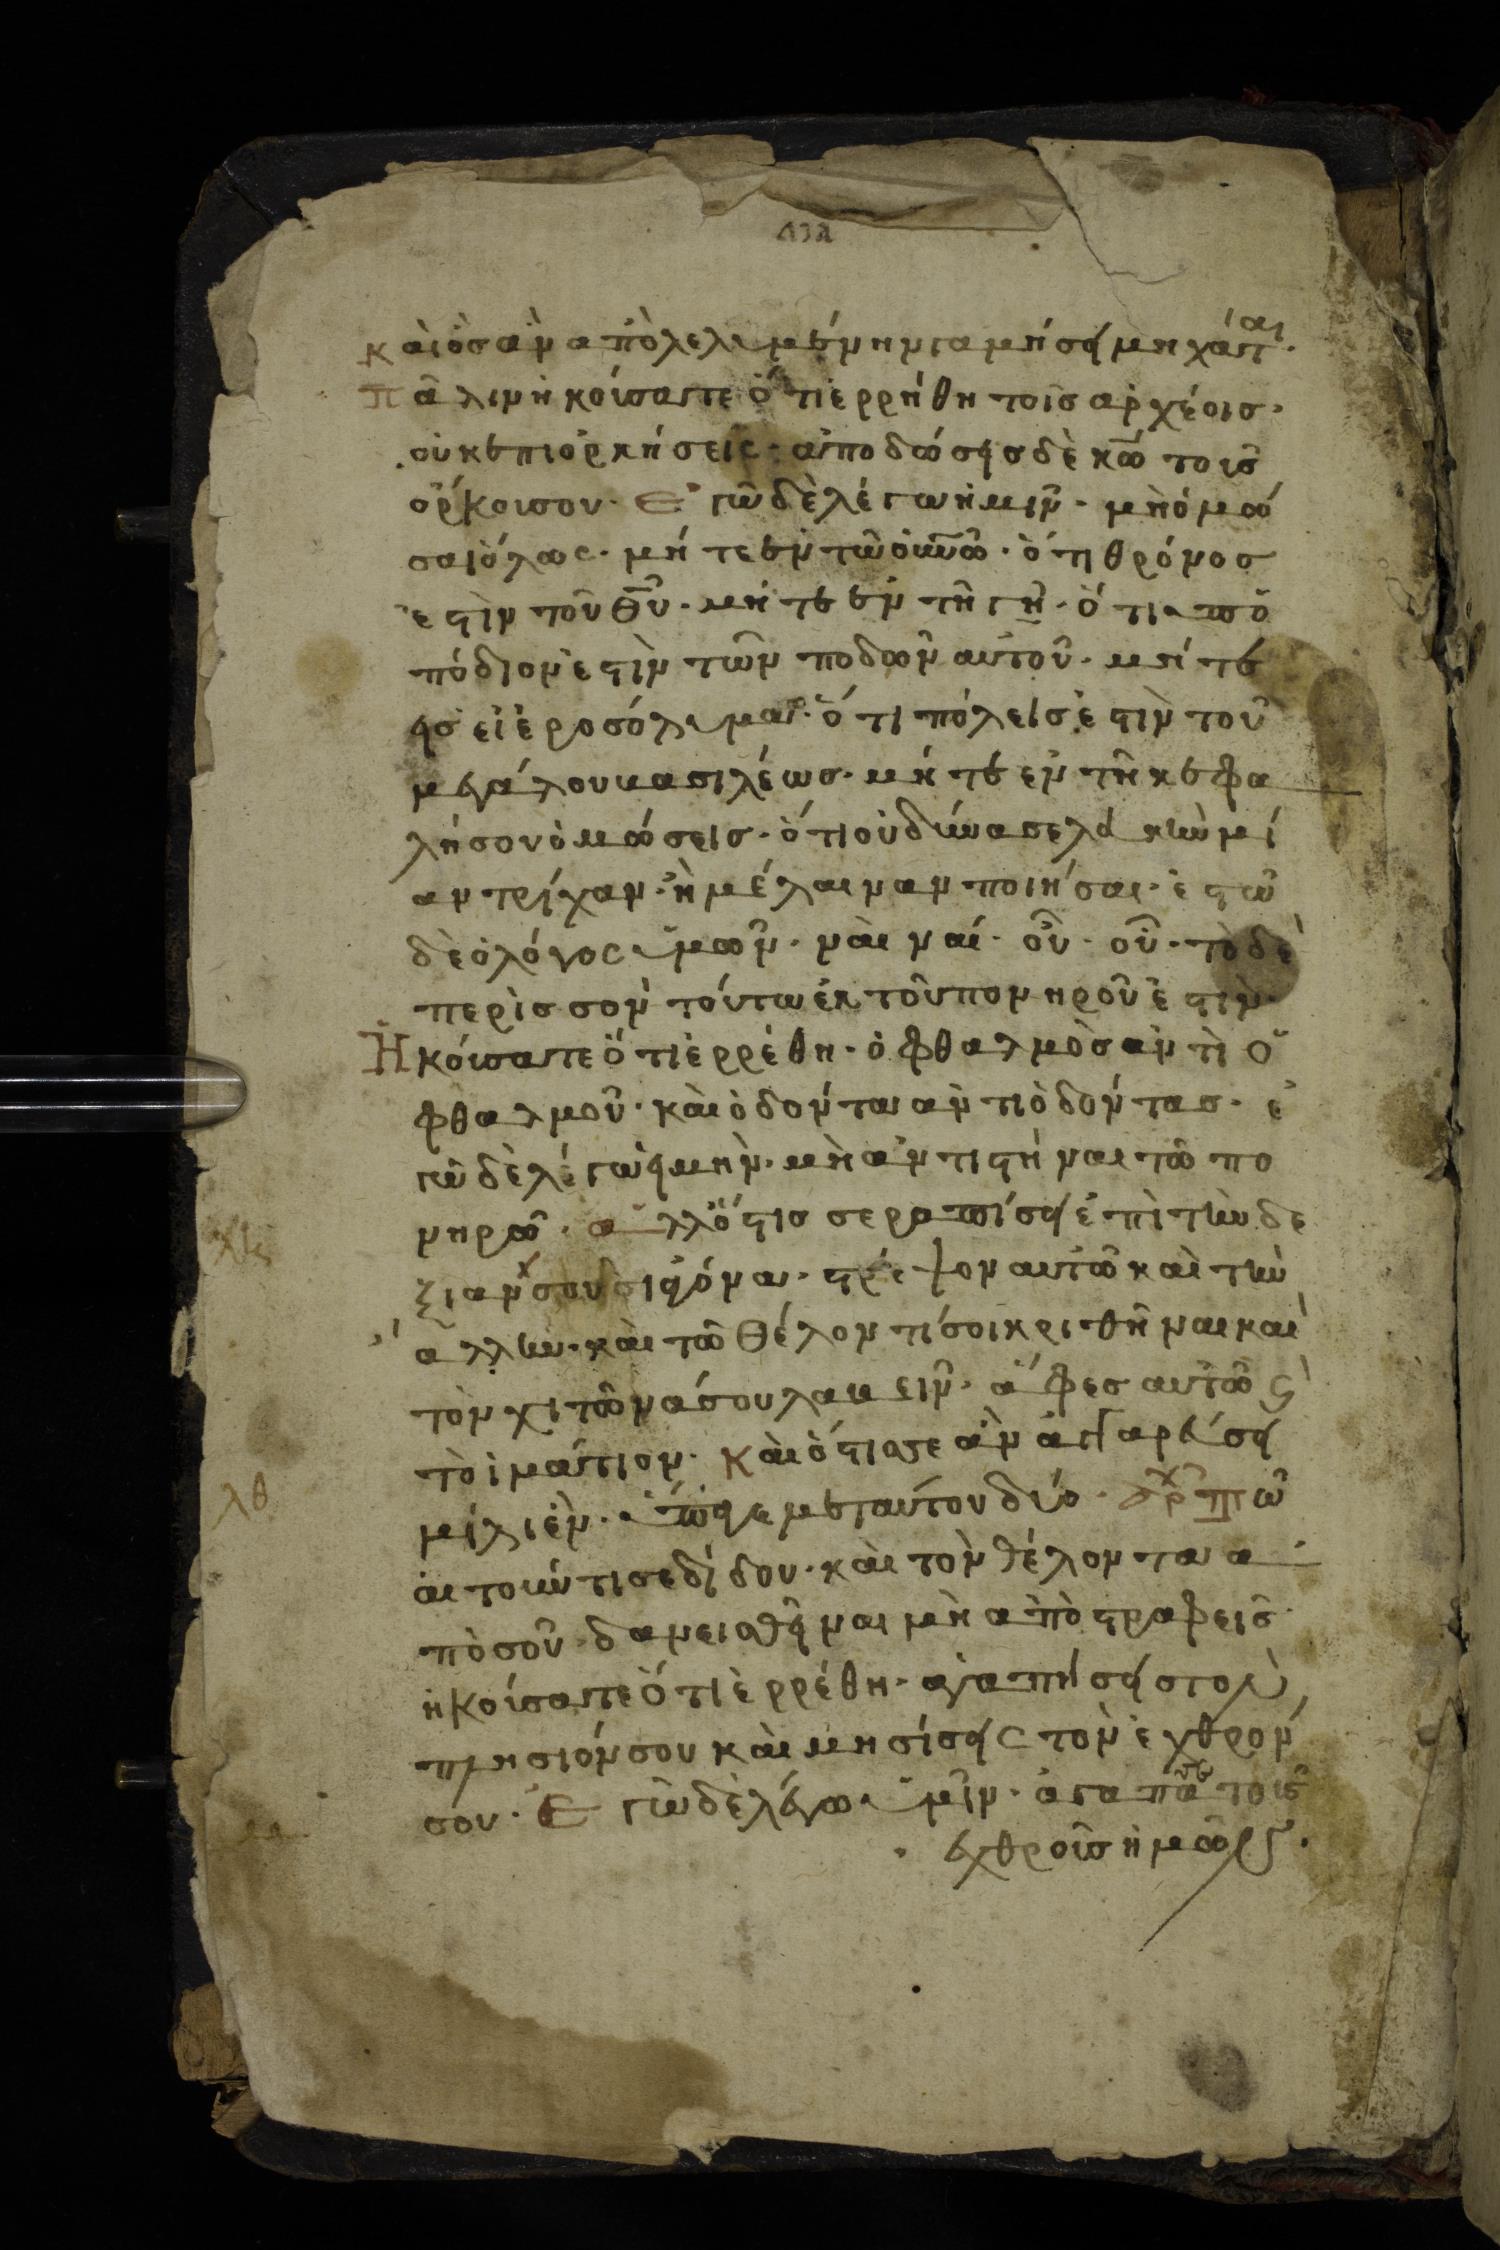 καὶ ὃσ ἂν ἀπὸλελυμένην γαμήσῃ μηχάται.
Πάλιν ἠκοίσατε ὅτι ἐρρήθη τοῖσ ἀρχέοισ.
οὐκ ἐπιὁρκήσεις. ἀποδώσῃσ δὲ κῶ τοισ
ὅρκοισου. Ἐγὼ δὲ λέγω ἡμῖν. μὴ ὀμώ
σαι ὅλως. μήτε ἐν τῶ οὐνῶ. ὅτι θρόνοσ
ἐστὶν τοῦ θυ. μήτε ἐν τῆ γῆ. ὅτι ὑπὸ
πόδιον ἐστὶν τῶν ποδῶν αὐτοῦ. μήτε
εἰσ ἱεροσόλυμα. ὅτι πόλεισ ἐστὶν τοῦ
μεγάλου βασιλέωσ. μήτε ἐν τῆ κεφα
λήσου ὀμώσεισ. ὅτι οὐ δύνασε λευκὴν μί
αν τρίχαν. ἢ μέλαιναν ποιήσαι. ἐστῶ
δὲ ὁ λόγος ὑμῶν. ναὶ ναί. οὒ. οὔ. τὸ δὲ
περὶσσον τούτω ἐκ τοῦ πονηροῦ ἐστιν.
Ἠκόισατε ὅτι ἐρρέθη. ὀφθαλμὸσ ἀντὶ ὀ
φθαλμοῦ. καὶ ὀδόντα ἀντι ὀδόντασ. ἐ
γὼ δὲ λέγω ἡμὴν. μὴ ἀντιστήναι τῶ πο
νηρῶ. ἀλλ' ὅστισ σε ραπίσῃ ἐπὶ τὴν δε
ξιὰν σου σιαγόνα. στρέψον αὐτῶ καὶ τὴν
ἄλλην. καὶ τῶ θέλοντί σοι κριθῆναι καὶ
τὸν χιτῶνά σου λαβειν. ἄφεσ αὐτῶ ϗ
τὸ ἱμάτιον. Καὶ ὅστισ σε ἂν ἀγγαρεύσῃ
μίλι ἐν. ὕπαγε μεταὐτου δύο. τῶ
αἰτούντι σε δίδου. καὶ τὸν θέλοντα ἀ
πὸ σοῦ δανεισθῆναι μὴ ἀπὸστραφεισ.
ἠκοίσατε ὅτι ἐρρέθη. ἀγαπήσῃσ τὸν
πλησιόν σου καὶ μησίσῃς τὸν ἐχθρόν
σου. Ἐγὼ δὲ λέγω ὑμῖν. ἀγαπᾶτε τοὶσ
ἐχθροῖσ ἡμῶν.
λθ